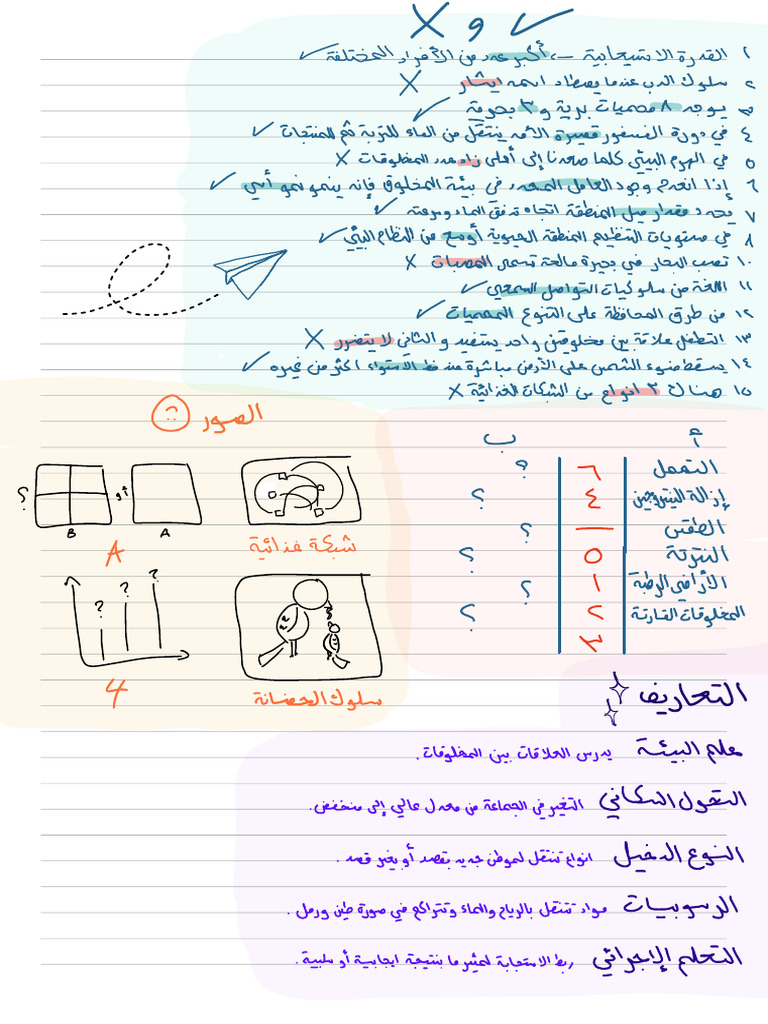 ✓ و X
١ القدرة الاستيعابية → أكبر عدد من الأفراد المختلفة ✓
٢ سلوك الدب عندما يصطاد اسمه ايثار X
٣ يوجد ٨ محميات برية و ٣ بحرية ✓
٤ في دورة الفسفور قصيرة الأمد ينتقل من الماء للتربة ثم للمنتجات ✓
٥ في الهرم البيئي كلما صعدنا إلى أعلى زاد عدد المخلوقات X
٦ إذا انعدم وجود العامل المحدد في بيئة المخلوق فإنه ينمو نمو أسي ✓
٧ يحدد مقدار ميل المنطقة اتجاه تدفق الماء وسرعته ✓
٨ في مستويات التنظيم المنطقة الحيوية أوسع من النظام البيئي ✓
١٠ تصب البحار في بحيرة مالحة تسمى المصبات X
١١ اللغة من سلوكيات التواصل السمعي ✓
١٢ من طرق المحافظة على التنوع المحميات ✓
١٣ التطفل علاقة بين مخلوقين واحد يستفيد والثاني لا يتضرر X
١٤ يسقط ضوء الشمس على الأرض مباشرة عند خط الاستواء اكثر من غيره ✓
١٥ هناك ٢ انواع من الشبكات الغذائية X
أ ب
التحمل ٦ ؟
إزالة النيتروجين ٤ ؟
الطقس — ؟
النترتة ٥ ؟
الأراضي الرطبة ١ ؟
المخلوقات القارتة ٢ ؟
٣
الصور
شبكة غذائية
؟ أو
B A
A
سلوك الحضانة
? ? ?
4
التعاريف
علم البيئة يدرس العلاقات بين المخلوقات.
التحول السكاني التغير في الجماعة من معدل عالي إلى منخفض.
النوع الدخيل انواع تنتقل لموطن جديد بقصد أو بغير قصد.
الرسوبيات مواد تنتقل بالرياح والماء وتتراكم في صورة طين ورمل.
التعلم الإجرائي ربط الاستجابة لمثير ما بنتيجة ايجابية أو سلبية.